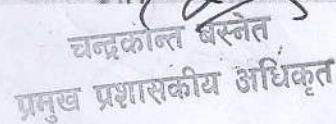 चन्द्रकान्त बस्नेत
प्रमुख प्रशासकीय अधिकृत